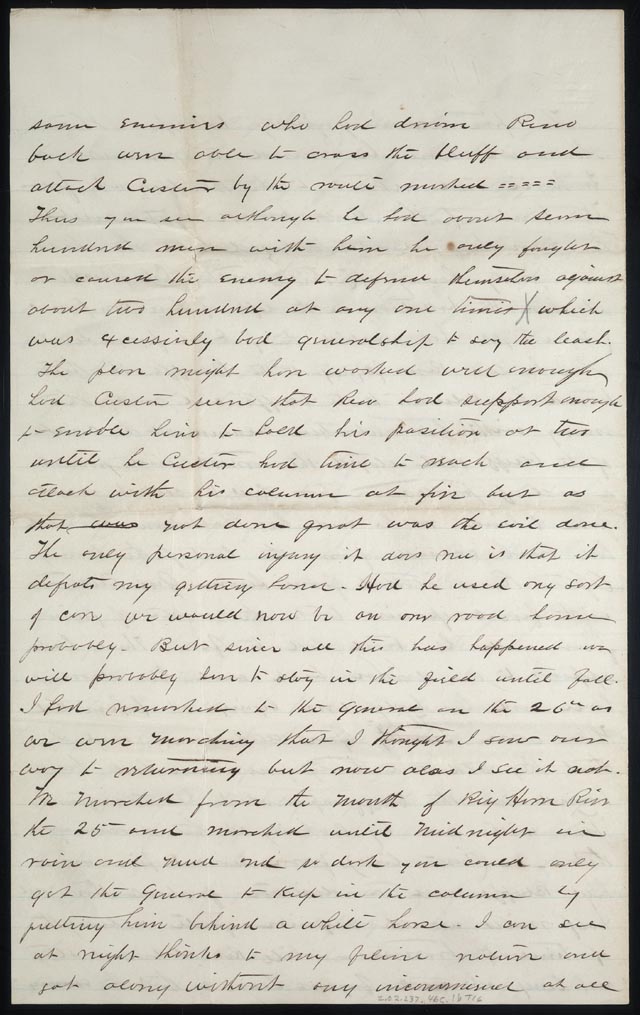 same enemies who had driven Reno
back were able to cross the bluff and
attack Custer by the route marked =====
Thus you see although he had about seven
hundred men with him he only fought
or caused the enemy to defend themselves against
about two hundred at any one time X which
was excessively bad generalship to say the least.
The plan might have worked well enough
had Custer seen that Reno had support enough
to enable him to hold his position at two
until he Custer had time to reach and
attack with his column at five but as
that was not done great was the evil done.
The only personal injury it does me is that it
defeats my getting home - Had he used any sort
of care we would now be on our road home
probably. But since all this has happened we
will probably have to stay in the field until fall.
I had remarked to the General on the 26th as
we were marching that I thought I saw our
way to returning but now alas I see it not.
We marched from the mouth of Big Horn River
the 25 and marched until midnight in
rain and mud and so dark you could only
get the General to keep in the column by
putting him behind a white horse. I can see
at night thanks to my feline nature and
got along without any inconvenience at all